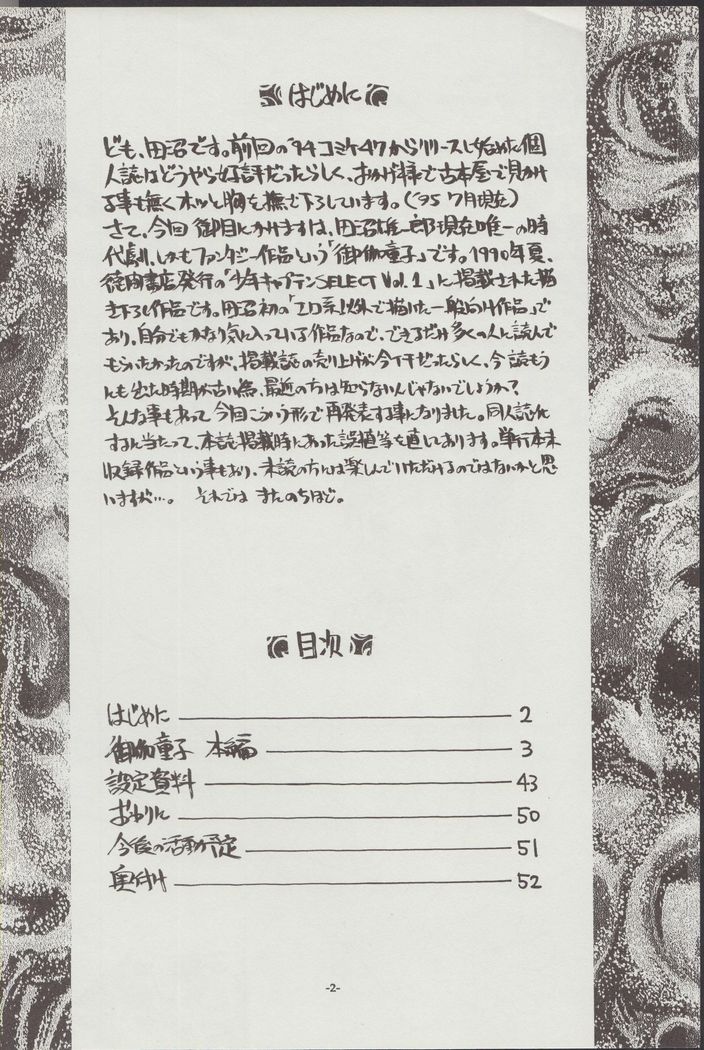 はじめに
ども、田沼です。前回の'94コミケ47からリリースし始めた個
人誌はどうやら好評だったらしく、おかげ様で古本屋で見かけ
る事も無くホッと胸を撫で下ろしています。('95 7月現在)
さて、今回御目にかけますは、田沼雄一郎現在唯一の時
代劇、しかもファンタジー作品という「御伽童子」です。1990年夏、
徳間書店発行の「少年キャプテンSELECT Vol.1」に掲載された描
き下ろし作品です。田沼初の「エロ系以外で描いた一般向け作品」で
あり、自分でもかなり気に入っている作品なので、できるだけ多くの人に読んで
もらいたかったのですが、掲載誌の売り上げが今イチだったらしく、今読もう
にも出た時期が古い為、最近の方は知らないんじゃないでしょうか?
そんな事もあって今回こういう形で再発表する事になりました。同人誌化
するに当たって、本誌掲載時にあった誤植等を直してあります。単行本未
収録作品という事もあり、未読の方には楽しんでいただけるのではないかと思
いますが…。 それでは またのちほど。
目次
はじめに 2
御伽童子 本編 3
設定資料 43
おわりに 50
今後の活動予定 51
奥付け 52
-2-